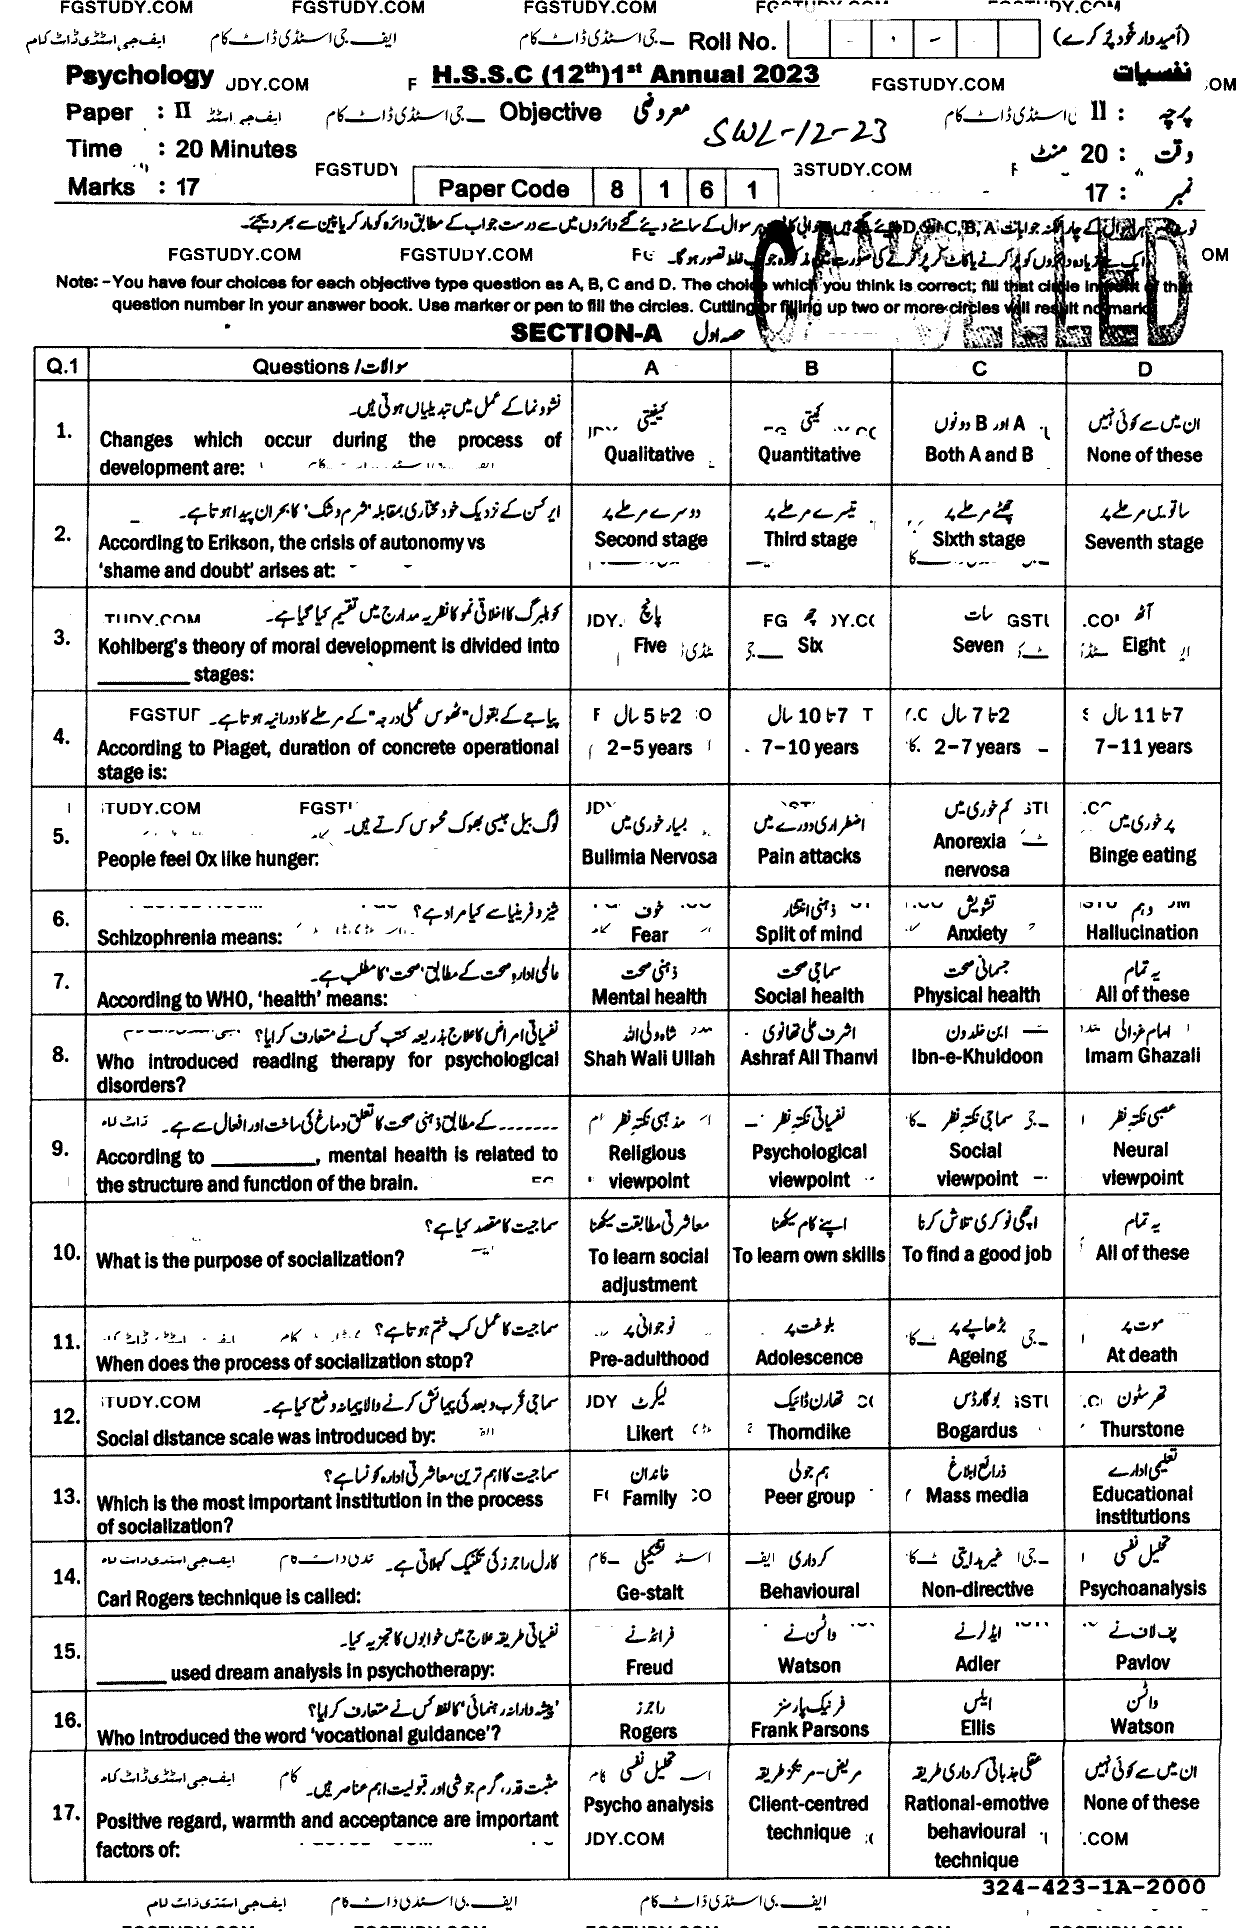 FGSTUDY.COM FGSTUDY.COM FGSTUDY.COM
ایف جی اسٹڈی ڈاٹ کام Roll No. (امیدوار خود پُر کرے)
Psychology JDY.COM H.S.S.C (12th) 1st Annual 2023 FGSTUDY.COM نفسیات
Paper : II Objective معروضی پرچہ : II
SWL-12-23
Time : 20 Minutes وقت : 20 منٹ
FGSTUDY GSTUDY.COM
Marks : 17 Paper Code 8 1 6 1 نمبر : 17
CANCELLED
FGSTUDY.COM FGSTUDY.COM
Note: -You have four choices for each objective type question as A, B, C and D. The choice which you think is correct; fill that circle in front of that
question number in your answer book. Use marker or pen to fill the circles. Cutting or filling up two or more circles will result no mark
SECTION-A حصہ اول
Q.1 Questions / سوالات A B C D
1. نشوونما کے عمل میں تبدیلیاں ہوتی ہیں۔ کیفیتی کمیتی A اور B دونوں ان میں سے کوئی نہیں
Changes which occur during the process of Qualitative Quantitative Both A and B None of these
development are:
2. ایرکسن کے نزدیک خود مختاری بمقابلہ 'شرم و شک' کا بحران پیدا ہوتا ہے۔ دوسرے مرحلے پر تیسرے مرحلے پر چھٹے مرحلے پر ساتویں مرحلے پر
According to Erikson, the crisis of autonomy vs Second stage Third stage Sixth stage Seventh stage
'shame and doubt' arises at:
3. کوہلبرگ کا اخلاقی نمو کا نظریہ مدارج میں تقسیم کیا گیا ہے۔ پانچ چھ سات آٹھ
Kohlberg's theory of moral development is divided into Five Six Seven Eight
_________ stages:
4. پیاجے کے بقول "ٹھوس عملی درجہ" کے مرحلے کا دورانیہ ہوتا ہے۔ 2 تا 5 سال 7 تا 10 سال 2 تا 7 سال 7 تا 11 سال
According to Piaget, duration of concrete operational 2-5 years 7-10 years 2-7 years 7-11 years
stage is:
5. لوگ بیل جیسی بھوک محسوس کرتے ہیں۔ بسیار خوری میں اضطراری دورے میں کم خوری میں پر خوری میں
People feel Ox like hunger: Bulimia Nervosa Pain attacks Anorexia nervosa Binge eating
6. شیزوفرینیا سے کیا مراد ہے؟ خوف ذہنی انتشار تشویش وہم
Schizophrenia means: Fear Split of mind Anxiety Hallucination
7. عالمی ادارہ صحت کے مطابق 'صحت' کا مطلب ہے۔ ذہنی صحت سماجی صحت جسمانی صحت یہ تمام
According to WHO, 'health' means: Mental health Social health Physical health All of these
8. نفسیاتی امراض کا علاج بذریعہ کتب کس نے متعارف کرایا؟ شاہ ولی اللہ اشرف علی تھانوی ابن خلدون امام غزالی
Who introduced reading therapy for psychological Shah Wali Ullah Ashraf Ali Thanvi Ibn-e-Khuldoon Imam Ghazali
disorders?
9. ------- کے مطابق ذہنی صحت کا تعلق دماغ کی ساخت اور افعال سے ہے۔ مذہبی نکتہ نظر نفسیاتی نکتہ نظر سماجی نکتہ نظر عصبی نکتہ نظر
According to __________, mental health is related to Religious Psychological Social Neural
the structure and function of the brain. viewpoint viewpoint viewpoint viewpoint
10. سماجیت کا مقصد کیا ہے؟ معاشرتی مطابقت سیکھنا اپنے کام سیکھنا اچھی نوکری تلاش کرنا یہ تمام
What is the purpose of socialization? To learn social adjustment To learn own skills To find a good job All of these
11. سماجیت کا عمل کب ختم ہوتا ہے؟ نوجوانی پر بلوغت پر بڑھاپے پر موت پر
When does the process of socialization stop? Pre-adulthood Adolescence Ageing At death
12. سماجی قرب و بعد کی پیمائش کرنے والا پیمانہ وضع کیا ہے۔ لیکرٹ تھارن ڈائیک بوگارڈس تھرسٹون
Social distance scale was introduced by: Likert Thorndike Bogardus Thurstone
13. سماجیت کا اہم ترین معاشرتی ادارہ کونسا ہے؟ خاندان ہم جولی ذرائع ابلاغ تعلیمی ادارے
Which is the most important institution in the process Family Peer group Mass media Educational
of socialization? institutions
14. کارل راجرز کی تکنیک کہلاتی ہے۔ تشکیلی کرداری غیر ہدایتی تحلیل نفسی
Carl Rogers technique is called: Ge-stalt Behavioural Non-directive Psychoanalysis
15. نفسیاتی طریقہ علاج میں خوابوں کا تجزیہ کیا۔ فرائڈ نے واٹسن نے ایڈلر نے پاف لاف نے
_______ used dream analysis in psychotherapy: Freud Watson Adler Pavlov
16. 'پیشہ وارانہ رہنمائی' کا لفظ کس نے متعارف کرایا؟ راجرز فرینک پارسنز ایلس واٹسن
Who introduced the word 'vocational guidance'? Rogers Frank Parsons Ellis Watson
17. مثبت قدر، گرم جوشی اور قبولیت اہم عناصر ہیں۔ تحلیل نفسی مریض-مرکز طریقہ عقلی جذباتی کرداری طریقہ ان میں سے کوئی نہیں
Positive regard, warmth and acceptance are important Psycho analysis Client-centred technique Rational-emotive behavioural technique None of these
factors of: JDY.COM .COM
324-423-1A-2000
ایف جی اسٹڈی ڈاٹ کام